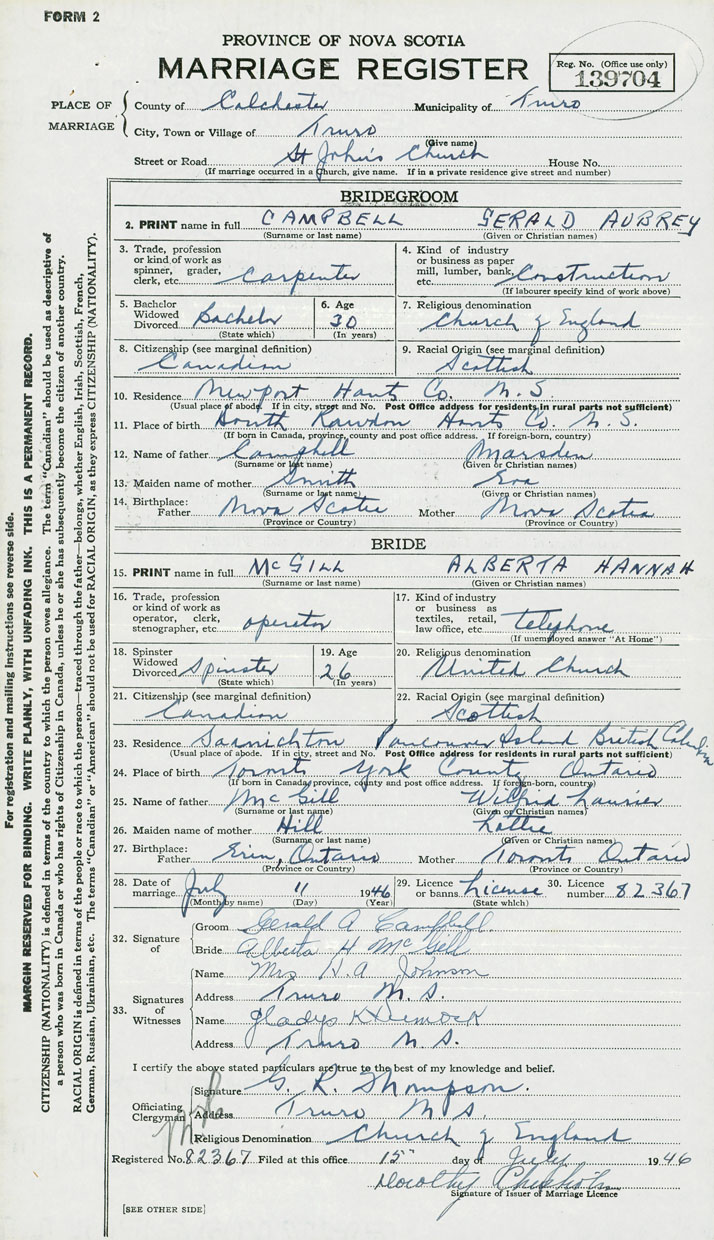 FORM 2
PROVINCE OF NOVA SCOTIA
MARRIAGE REGISTER
Reg. No. (Office use only)
139704
PLACE OF MARRIAGE
County of Colchester Municipality of Truro
City, Town or Village of Truro
(Give name)
Street or Road St John's Church House No.
(If marriage occurred in a Church, give name. If in a private residence give street and number)
BRIDEGROOM
2. PRINT name in full CAMPBELL GERALD AUBREY
(Surname or last name) (Given or Christian names)
3. Trade, profession or kind of work as spinner, grader, clerk, etc. Carpenter
4. Kind of industry or business as paper mill, lumber, bank, etc. Construction
(If labourer specify kind of work above)
5. Bachelor Widowed Divorced Bachelor (State which)
6. Age 30 (In years)
7. Religious denomination Church of England
8. Citizenship (see marginal definition) Canadian
9. Racial Origin (see marginal definition) Scottish
10. Residence Newport Hants Co. N.S.
(Usual place of abode. If in city, street and No. Post Office address for residents in rural parts not sufficient)
11. Place of birth South Rawdon Hants Co. N.S.
(If born in Canada, province, county and post office address. If foreign-born, country)
12. Name of father Campbell Marsden
(Surname or last name) (Given or Christian names)
13. Maiden name of mother Smith Eva
(Surname or last name) (Given or Christian names)
14. Birthplace: Father Nova Scotia Mother Nova Scotia
(Province or Country) (Province or Country)
BRIDE
15. PRINT name in full McGILL ALBERTA HANNAH
(Surname or last name) (Given or Christian names)
16. Trade, profession or kind of work as operator, clerk, stenographer, etc. operator
17. Kind of industry or business as textiles, retail, law office, etc. telephone
(If unemployed answer "At Home")
18. Spinster Widowed Divorced Spinster (State which)
19. Age 26 (In years)
20. Religious denomination United Church
21. Citizenship (see marginal definition) Canadian
22. Racial Origin (see marginal definition) Scottish
23. Residence Saanichton Vancouver Island British Columbia
(Usual place of abode. If in city, street and No. Post Office address for residents in rural parts not sufficient)
24. Place of birth Toronto York County Ontario
(If born in Canada, province, county and post office address. If foreign-born, country)
25. Name of father McGill Wilfrid Laurier
(Surname or last name) (Given or Christian names)
26. Maiden name of mother Hill Lottie
(Surname or last name) (Given or Christian names)
27. Birthplace: Father Erin, Ontario Mother Toronto Ontario
(Province or Country) (Province or Country)
28. Date of marriage July 11 1946
(Month by name) (Day) (Year)
29. Licence or banns License (State which)
30. Licence number 82367
32. Signature of
Groom Gerald A Campbell.
Bride Alberta H McGill
33. Signatures of Witnesses
Name Mrs H.A Johnson
Address Truro N.S.
Name Gladys K
Address Truro N.S.
I certify the above stated particulars are true to the best of my knowledge and belief.
Officiating Clergyman
Signature G. R. Thompson.
Address Truro N.S.
Religious Denomination Church of England
Registered No. 82367 Filed at this office 15th day of July 1946
Dorothy Chisholm
Signature of Issuer of Marriage Licence
[SEE OTHER SIDE]
For registration and mailing instructions see reverse side.
MARGIN RESERVED FOR BINDING. WRITE PLAINLY, WITH UNFADING INK. THIS IS A PERMANENT RECORD.
CITIZENSHIP (NATIONALITY) is defined in terms of the country to which the person owes allegiance. The term "Canadian" should be used as descriptive of
a person who was born in Canada or who has rights of Citizenship in Canada, unless he or she has subsequently become the citizen of another country.
RACIAL ORIGIN is defined in terms of the people or race to which the person—traced through the father—belongs, whether English, Irish, Scottish, French,
German, Russian, Ukrainian, etc. The terms "Canadian" or "American" should not be used for RACIAL ORIGIN, as they express CITIZENSHIP (NATIONALITY).